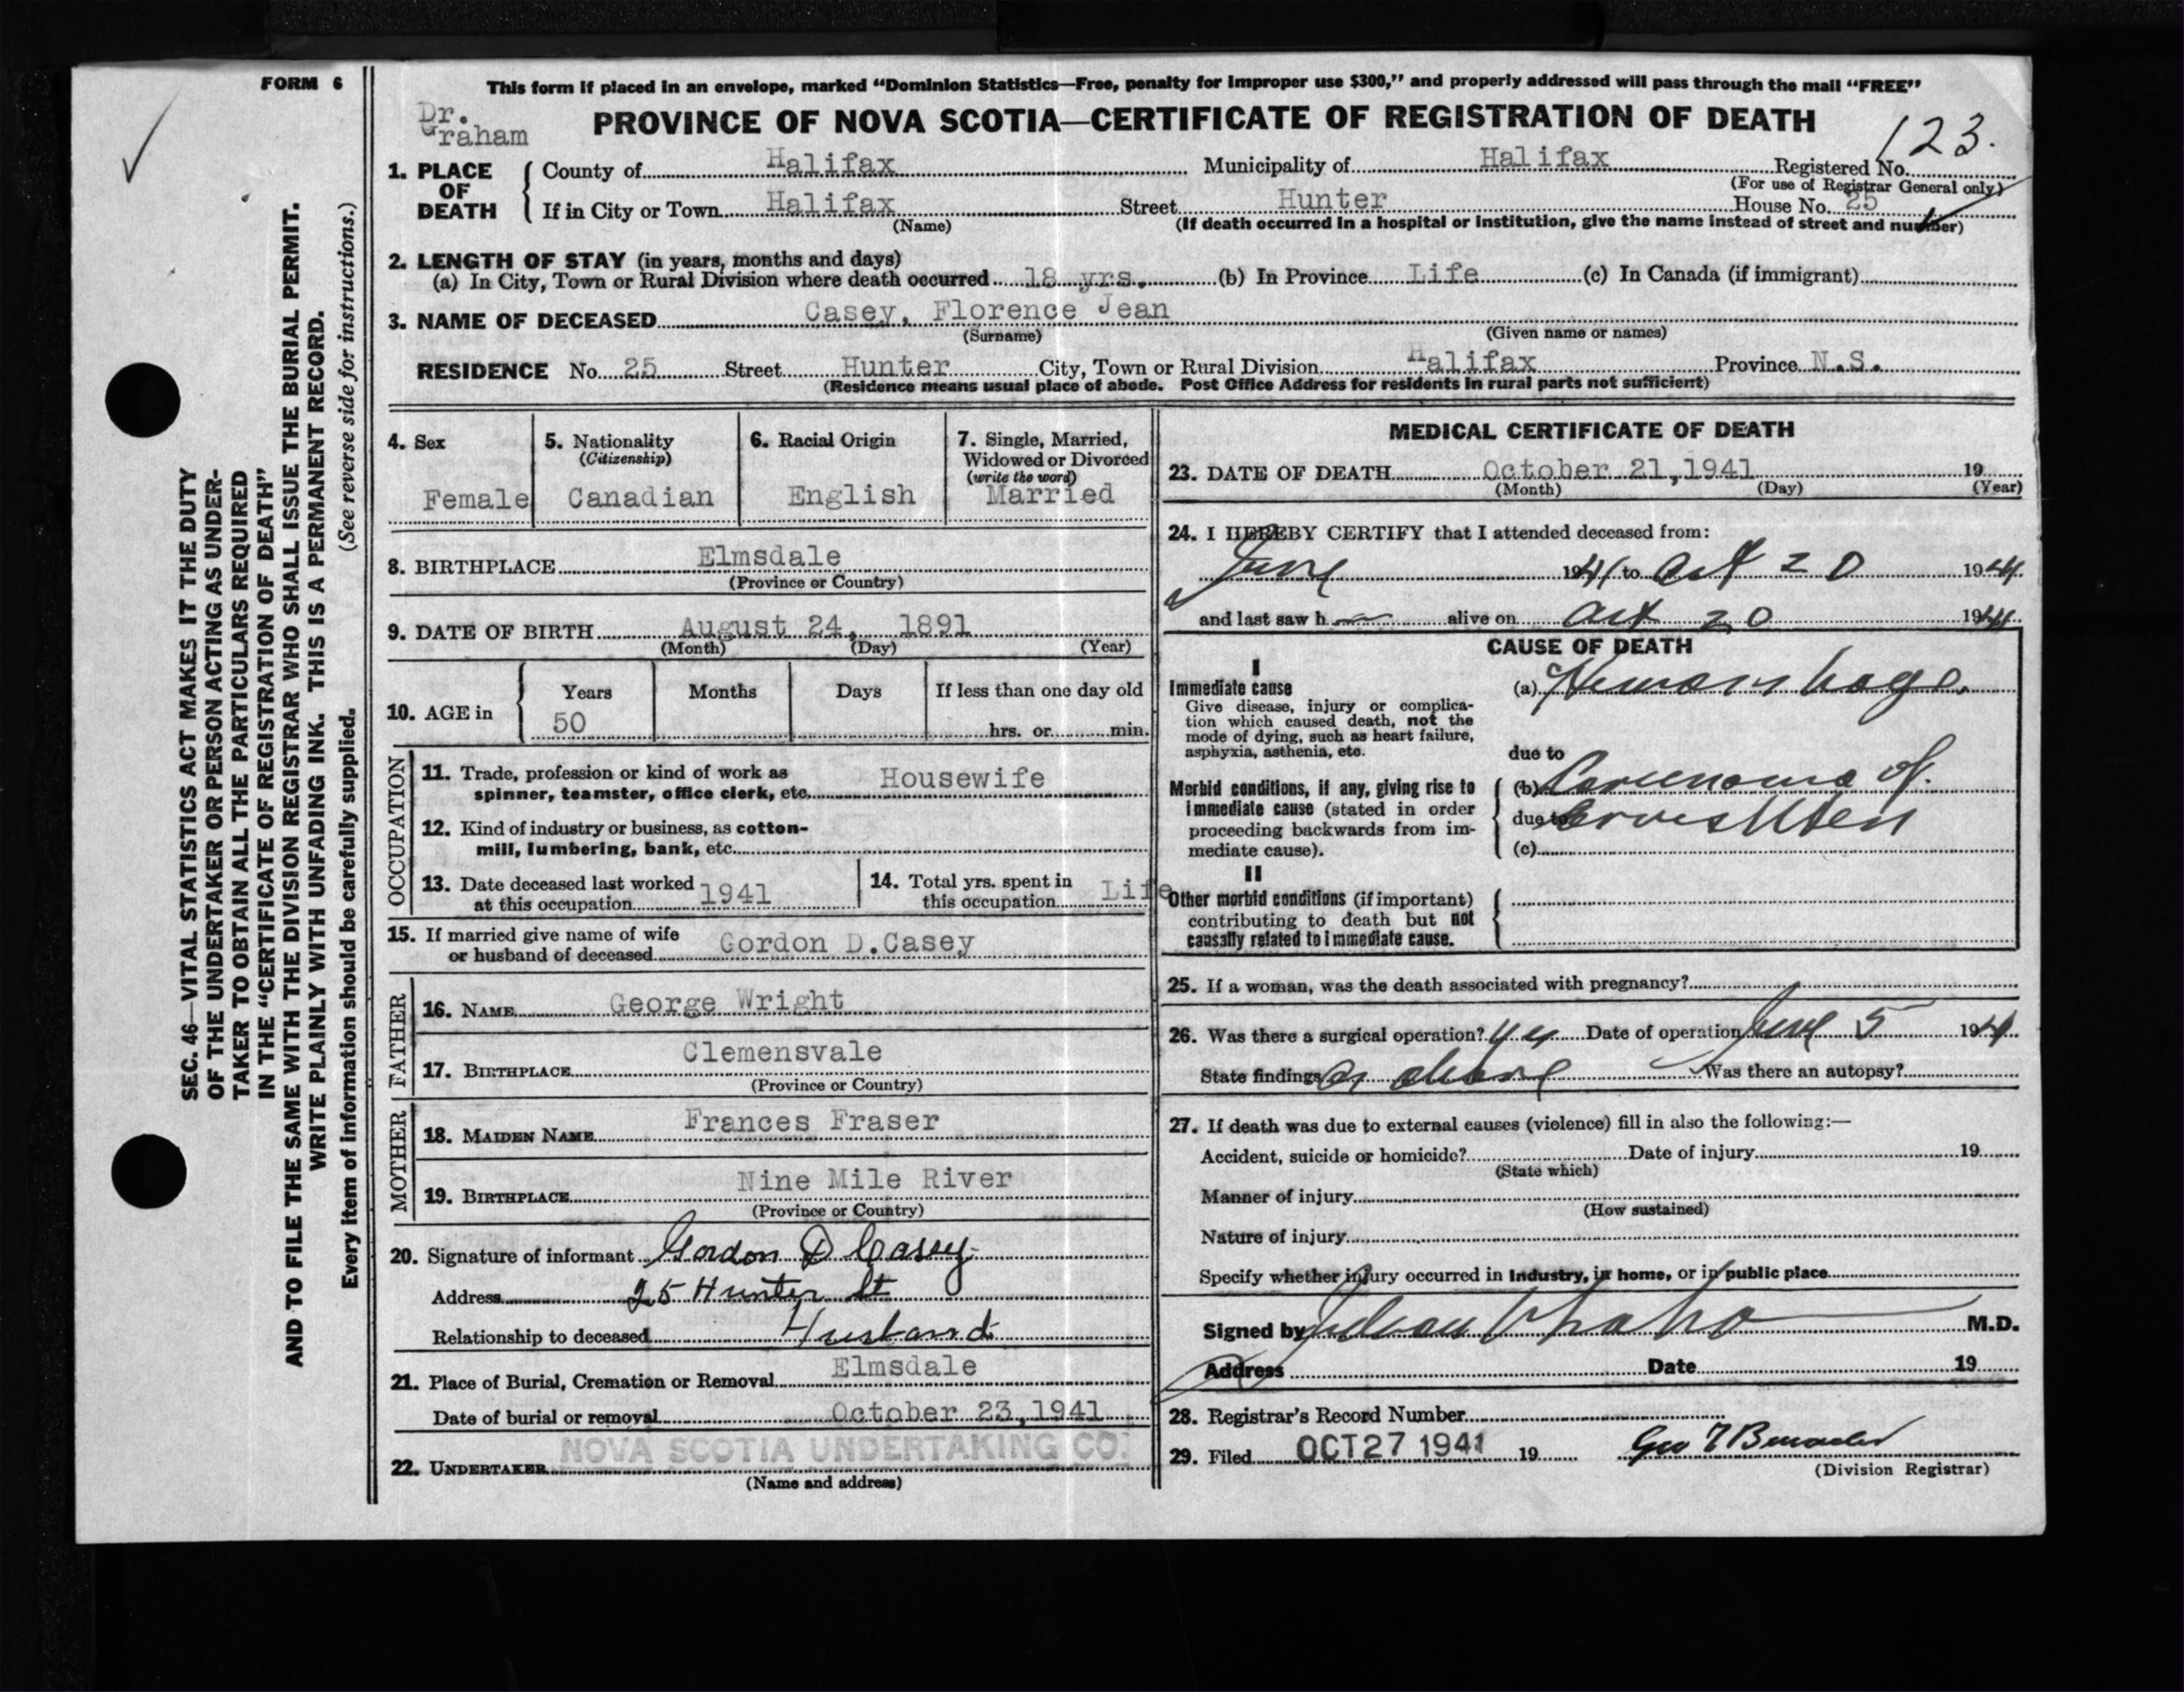 FORM 6
This form if placed in an envelope, marked “Dominion Statistics—Free, penalty for improper use $300,” and properly addressed will pass through the mail “FREE”
Dr.
Graham
PROVINCE OF NOVA SCOTIA—CERTIFICATE OF REGISTRATION OF DEATH
123.
1. PLACE OF DEATH
County of Halifax Municipality of Halifax Registered No.
(For use of Registrar General only)
If in City or Town Halifax Street Hunter House No. 25
(Name) (If death occurred in a hospital or institution, give the name instead of street and number)
2. LENGTH OF STAY (in years, months and days)
(a) In City, Town or Rural Division where death occurred 18 yrs. (b) In Province Life (c) In Canada (if immigrant)
3. NAME OF DECEASED Casey, Florence Jean
(Surname) (Given name or names)
RESIDENCE No. 25 Street Hunter City, Town or Rural Division Halifax Province N.S.
(Residence means usual place of abode. Post Office Address for residents in rural parts not sufficient)
4. Sex
Female
5. Nationality
(Citizenship)
Canadian
6. Racial Origin
English
7. Single, Married,
Widowed or Divorced
(write the word)
Married
8. BIRTHPLACE Elmsdale
(Province or Country)
9. DATE OF BIRTH August 24, 1891
(Month) (Day) (Year)
10. AGE in
Years Months Days If less than one day old
50 hrs. or min.
OCCUPATION
11. Trade, profession or kind of work as
spinner, teamster, office clerk, etc. Housewife
12. Kind of industry or business, as cotton-
mill, lumbering, bank, etc.
13. Date deceased last worked
at this occupation 1941
14. Total yrs. spent in
this occupation Life
15. If married give name of wife
or husband of deceased Gordon D.Casey
FATHER
16. NAME George Wright
17. BIRTHPLACE Clemensvale
(Province or Country)
MOTHER
18. MAIDEN NAME Frances Fraser
19. BIRTHPLACE Nine Mile River
(Province or Country)
20. Signature of informant Gordon D Casey
Address 25 Hunter St
Relationship to deceased Husband
21. Place of Burial, Cremation or Removal Elmsdale
Date of burial or removal October 23,1941
NOVA SCOTIA UNDERTAKING CO.
22. UNDERTAKER
(Name and address)
MEDICAL CERTIFICATE OF DEATH
23. DATE OF DEATH October 21,1941 19
(Month) (Day) (Year)
24. I HEREBY CERTIFY that I attended deceased from:
June 1941 to Oct 20 1941
and last saw h alive on Oct 20 1941
CAUSE OF DEATH
I
Immediate cause
Give disease, injury or complica-
tion which caused death, not the
mode of dying, such as heart failure,
asphyxia, asthenia, etc.
(a) Hemorrhage
due to
Morbid conditions, if any, giving rise to
immediate cause (stated in order
proceeding backwards from im-
mediate cause).
(b) Carcinoma of
due to
(c)
II
Other morbid conditions (if important)
contributing to death but not
causally related to immediate cause.
25. If a woman, was the death associated with pregnancy?
26. Was there a surgical operation? yes Date of operation June 5 1941
State findings as above Was there an autopsy?
27. If death was due to external causes (violence) fill in also the following:—
Accident, suicide or homicide? Date of injury 19
(State which)
Manner of injury
(How sustained)
Nature of injury
Specify whether injury occurred in industry, in home, or in public place
Signed by M.D.
Address Date 19
28. Registrar's Record Number
29. Filed OCT 27 1941 19
(Division Registrar)
SEC. 46—VITAL STATISTICS ACT MAKES IT THE DUTY
OF THE UNDERTAKER OR PERSON ACTING AS UNDER-
TAKER TO OBTAIN ALL THE PARTICULARS REQUIRED
IN THE “CERTIFICATE OF REGISTRATION OF DEATH”
AND TO FILE THE SAME WITH THE DIVISION REGISTRAR WHO SHALL ISSUE THE BURIAL PERMIT.
WRITE PLAINLY WITH UNFADING INK. THIS IS A PERMANENT RECORD.
Every item of information should be carefully supplied. (See reverse side for instructions.)